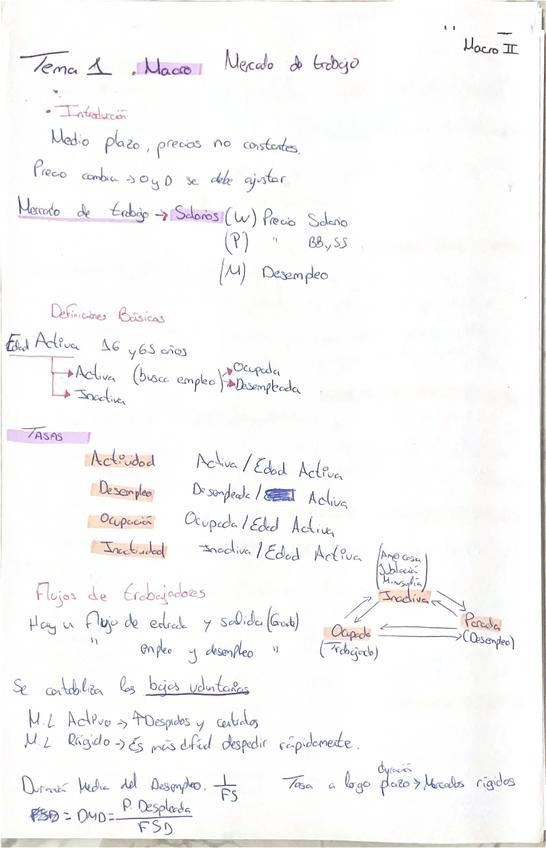 Macro II
Tema 1 . Macro Mercado de trabajo
• Introducción
Medio plazo, precios no constantes.
Precio cambia → O y D se debe ajustar
Mercado de trabajo → Salarios (W) Precio Salario
(P) " BB y SS
(M) Desempleo
Definiciones Básicas
Edad Activa 16 y 65 años
→ Activa (busca empleo) → Ocupada
→ Desempleada
→ Inactiva
TASAS
Actividad Activa / Edad Activa
Desempleo Desempleada / Activa
Ocupación Ocupada / Edad Activa
Inactividad Inactiva / Edad Activa
Jubilación
Inactiva
Flujos de trabajadores
Hay u Flujo de entrada y salida (Grande)
" empleo y desempleo "
Parada
(Desempleo)
Ocupada
(Trabajado)
Se contabiliza las bajas voluntarias
M.L Activo → ↑Despidos y contratos
M.L Rígido → Es más difícil despedir rápidamente.
Duración Media del Desempleo. 1/FS
Tasa a largo plazo > Mercados rígidos
duración
= DMD = P. Despleada / FSD